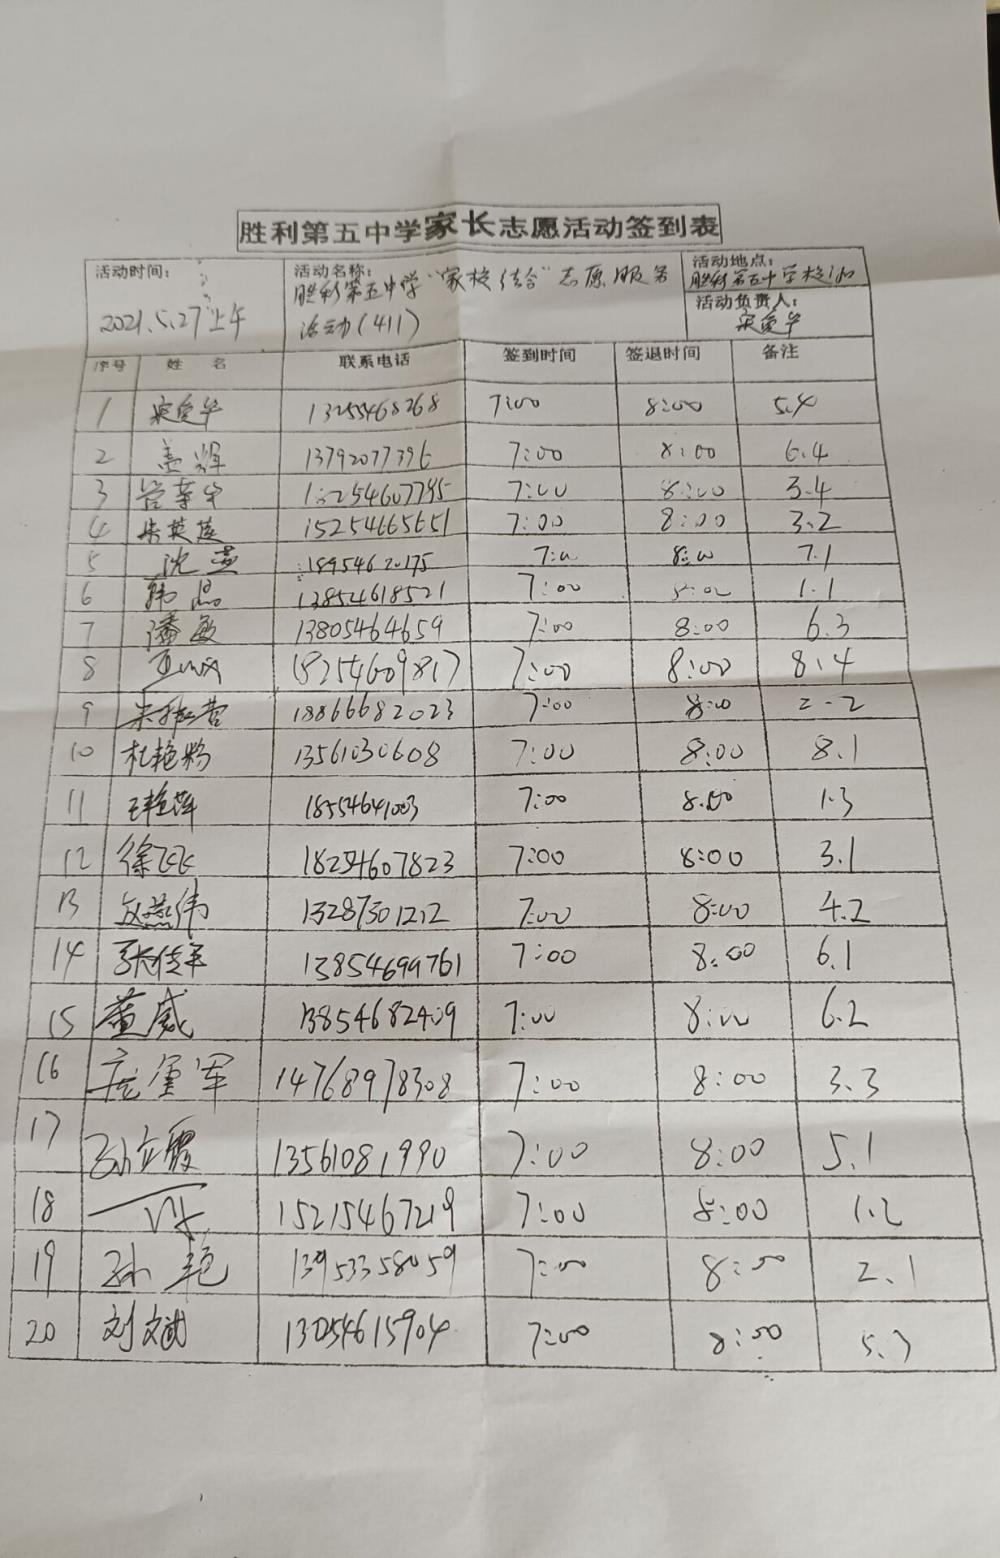 胜利第五中学家长志愿活动签到表
活动时间: 2021.5.27上午
活动名称: 胜利第五中学“家校结合”志愿服务
活动(411)
活动地点: 胜利第五中学校门口
活动负责人: 宋爱华
序号 姓 名 联系电话 签到时间 签退时间 备注
1 宋爱华 13255468268 7:00 8:00 5.4
2 孟辉 13792077396 7:00 8:00 6.4
3 7:00 8:00 3.4
4 朱英莲 7:00 8:00 3.2
5 沈燕 7:00 8:00 7.1
6 韩晶 13854618521 7:00 8:00 1.1
7 潘敏 13805464659 7:00 8:00 6.3
8 18254609817 7:00 8:00 8.4
9 18866682023 7:00 8:00 2-2
10 杜艳粉 13561030608 7:00 8:00 8.1
11 18554641003 7:00 8:00 1.3
12 徐飞飞 18254607823 7:00 8:00 3.1
13 13287301212 7:00 8:00 4.2
14 13854699761 7:00 8:00 6.1
15 董威 13854682409 7:00 8:00 6.2
16 14768978308 7:00 8:00 3.3
17 孙立霞 13561081990 7:00 8:00 5.1
18 15215467219 7:00 8:00 1.2
19 孙艳 13953358059 7:00 8:00 2.1
20 刘文斌 13054615904 7:00 8:00 5.3